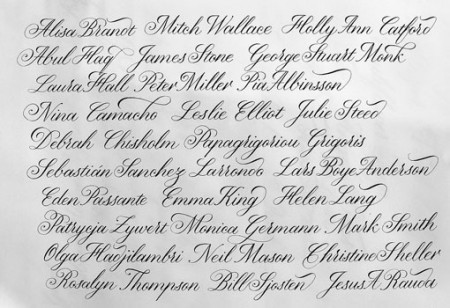 Alisa Brandt Mitch Wallace Holly Ann Catford
Abul Haq James Stone George Stuart Monk
Laura Hall Peter Miller Pia Albinsson
Nina Camacho Leslie Elliot Julie Steed
Debrah Chisholm Papagrigoriou Grigoris
Sebastián Sanchez Larrondo Lars Boye Anderson
Eden Passante Emma King Helen Lang
Patrycja Zywert Monica Germann Mark Smith
Olga Hadjilambri Neil Mason Christine Sheller
Rosalyn Thompson Bill Sjosten Jesus A Rauda